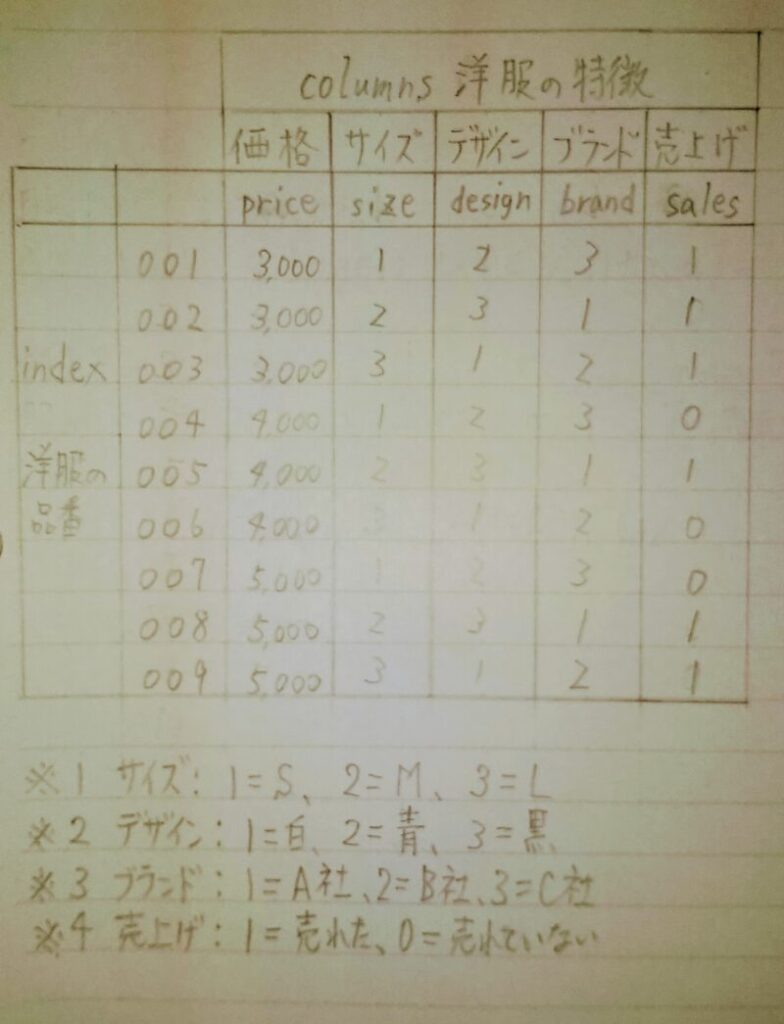 columns 洋服の特徴
価格 サイズ デザイン ブランド 売上げ
price size design brand sales
001 3,000 1 2 3 1
002 3,000 2 3 1 1
index 003 3,000 3 1 2 1
004 4,000 1 2 3 0
洋服の 005 4,000 2 3 1 1
品番 006 4,000 3 1 2 0
007 5,000 1 2 3 0
008 5,000 2 3 1 1
009 5,000 3 1 2 1
※1 サイズ: 1=S、2=M、3=L
※2 デザイン: 1=白、2=青、3=黒
※3 ブランド: 1=A社、2=B社、3=C社
※4 売上げ: 1=売れた、0=売れていない